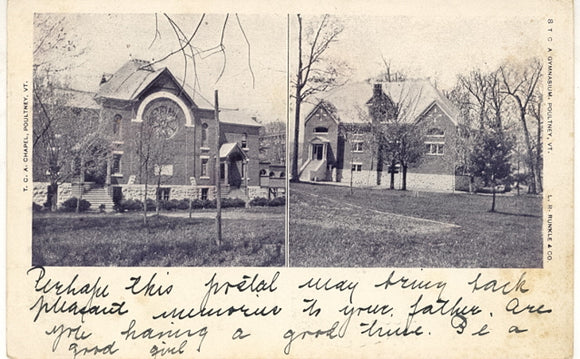 T. C. A. CHAPEL, POULTNEY, VT.
8 T. C. A. GYMNASIUM, POULTNEY, VT.
L. R. RUNKLE & CO.
Perhaps this postal may bring back
pleasant memories to your father. Are
you having a good time. Be a
good girl